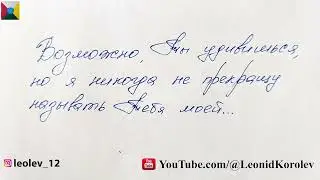 Возможно, Ты удивишься,
но я никогда не прекращу
называть Тебя моей...
leolev_12
YouTube.com/@LeonidKorolev